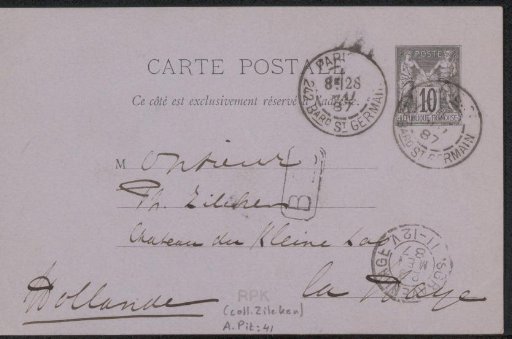 CARTE POSTALE
Ce côté est exclusivement réservé à l'adresse.
POSTE
10
RÉPUBLIQUE FRANÇAISE
PARIS
28
87
242 BARD ST GERMAIN
87
BARD ST GERMAIN
Monsieur
Ph. Zilcken
B
Chateau du Kleine Loo
la Haye
Hollande
11-12 V
RPK
(coll. Zilcken)
A. Pit; 41